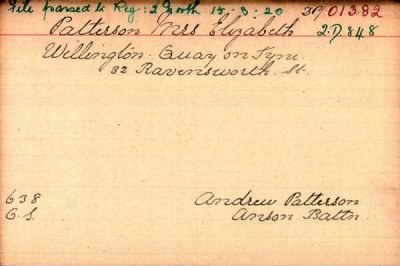 File passed to Reg: 2 North 15-3-20 3P/01382
Patterson Mrs Elizabeth 2.D.848
Willington-Quay on Tyne
32 Ravensworth St.
638 Andrew Patterson
G.S. Anson Battn.